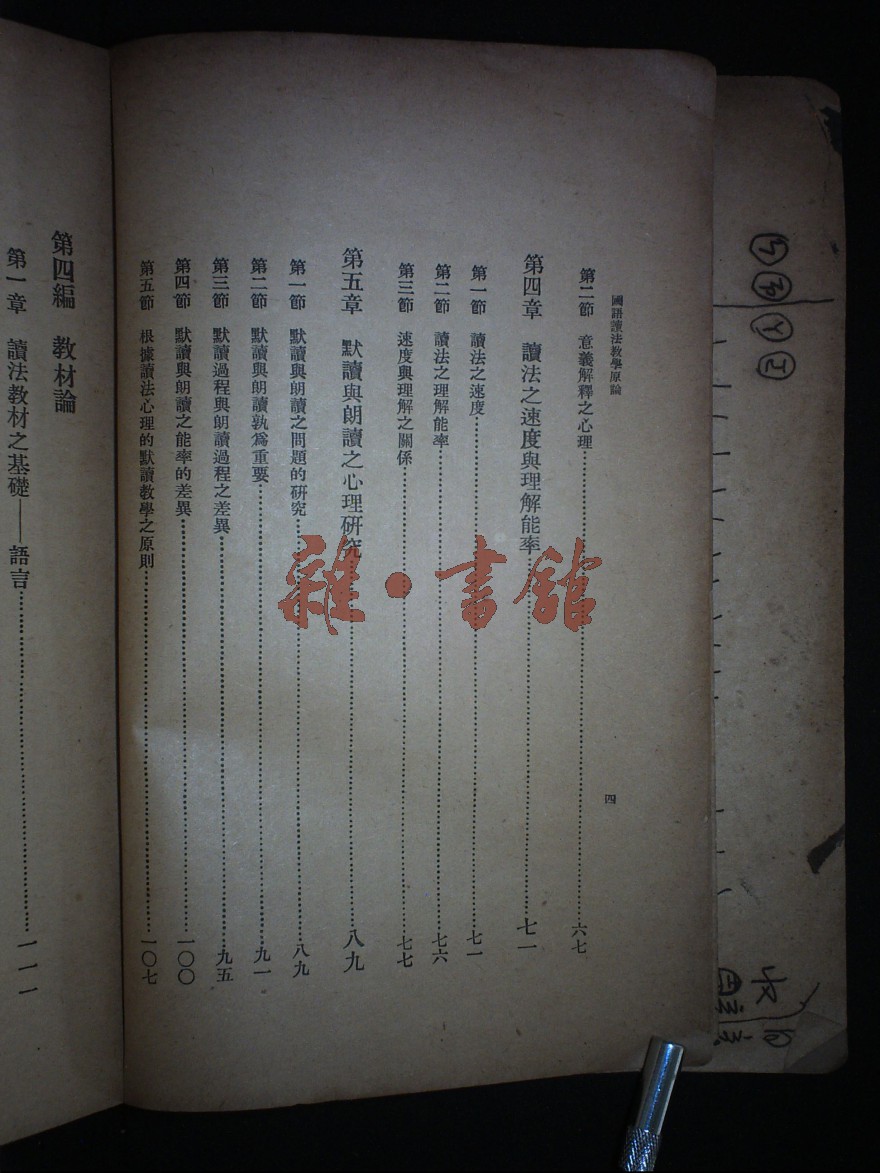 國語讀法教學原論
四
第二節 意義解釋之心理……六七
第四章 讀法之速度與理解能率……七一
第一節 讀法之速度……七一
第二節 讀法之理解能率……七六
第三節 速度與理解之關係……七七
第五章 默讀與朗讀之心理研究……八九
第一節 默讀與朗讀之問題的研究……八九
第二節 默讀與朗讀孰爲重要……九一
第三節 默讀過程與朗讀過程之差異……九五
第四節 默讀與朗讀之能率的差異……一〇〇
第五節 根據讀法心理的默讀教學之原則……一〇七
第四編 教材論
第一章 讀法教材之基礎——語言……一一一
雜·書館